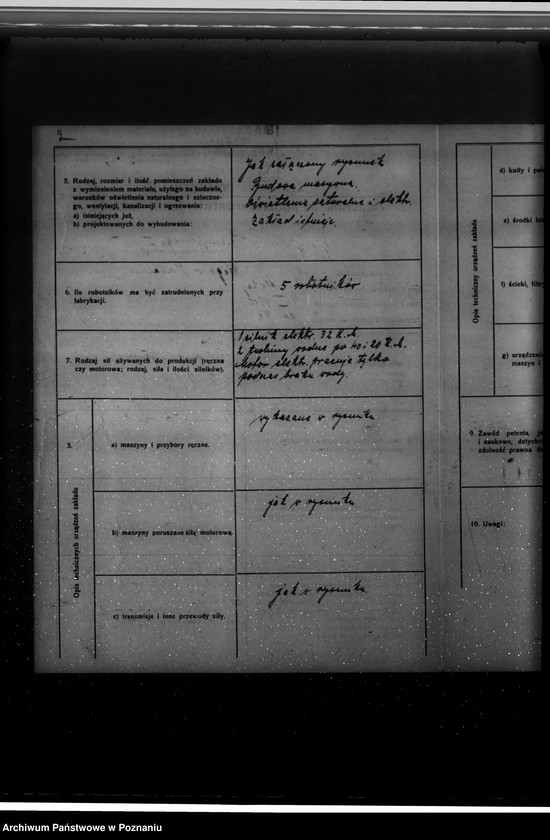 2
5. Rodzaj, rozmiar i ilość pomieszczeń zakładu
z wymienieniem materjału, użytego na budowie,
warunków oświetlenia naturalnego i sztuczne-
go, wentylacji, kanalizacji i ogrzewania:
a) istniejących już,
b) projektowanych do wybudowania:
Jak załączony rysunek
Budowa masywna.
Oświetlenie naturalne i elektr.
Zakład istnieje.
6. Ilu robotników ma być zatrudnionych przy
fabrykacji.
5 robotników
7. Rodzaj sił używanych do produkcji (ręczna
czy motorowa; rodzaj, siła i ilości silników).
1 silnik elektr. 32 K.M.
2 turbiny wodne po 40 i 20 K.M.
Motor elektr. pracuje tylko
podczas braku wody.
3.
Opis technicznych urządzeń zakładu
a) maszyny i przybory ręczne.
wykazane w rysunku
b) maszyny poruszane siłą motorową.
jak w rysunku
c) transmisje i inne przewody siły.
jak w rysunku.
Opis techniczny urządzeń zakładu
d) kotły i
e) środki
f) ścieki,
g) urządzeni
maszyn i
9. Zawód petenta,
i naukowe, dotych
zdolność prawna
10. Uwagi:
Archiwum Państwowe w Poznaniu